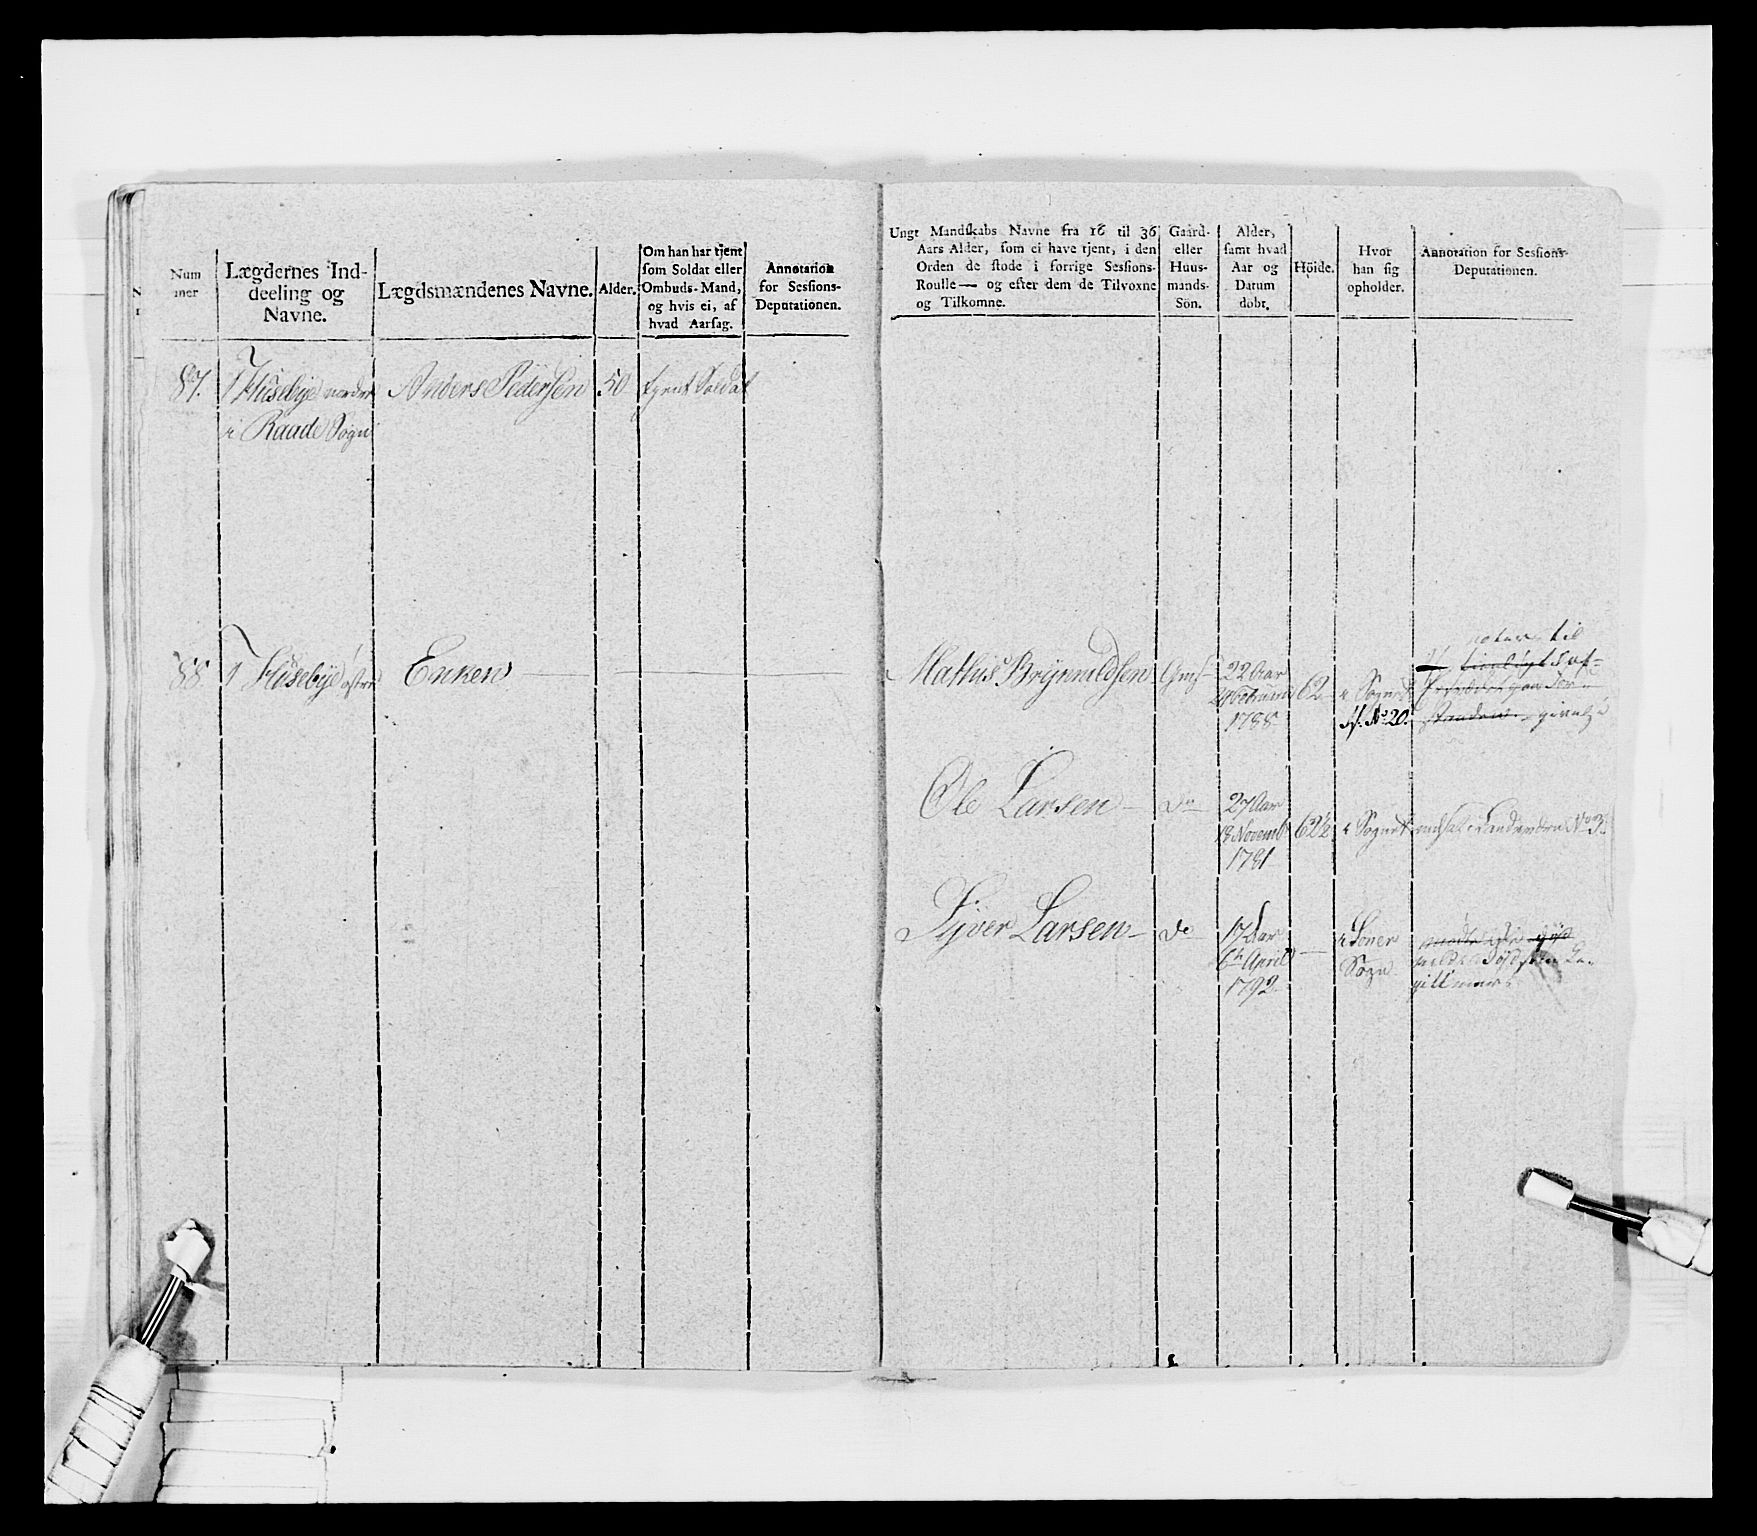 Num
mer
Lægdernes Ind-
deeling og
Navne.
Lægdsmændenes Navne.
Alder.
Om han har tjent
som Soldat eller
Ombuds-Mand,
og hvis ei, af
hvad Aarsag.
Annotation
for Sessions-
Deputationen.
Ungt Mandskabs Navne fra 16 til 36
Aars Alder, som ei have tjent, i den
Orden de stode i forrige Sessions-
Roulle — og efter dem de Tilvoxne
og Tilkomne.
Gaard-
eller
Huus-
mands-
Sön.
Alder,
samt hvad
Aar og
Datum
döbt.
Höide.
Hvor
han sig
opholder.
Annotation for Sessions-
Deputationen.
87.
1 Husebye nordre
i Raade Sogn
Anders Pedersen
50
tjent Soldat
88
1 Husebye østre
Enken
Mathis Brynnildsen
Gms
22 Aar
Februari
1788
62
i Sognet
N° 20.
til
Ole Larsen
do
27 Aar
18 Novemb
1781
62½
i Sognet
indsat i Landværn N° 3.
Syver Larsen
do
17 Aar
6te April
1792
i Soner
Sogn